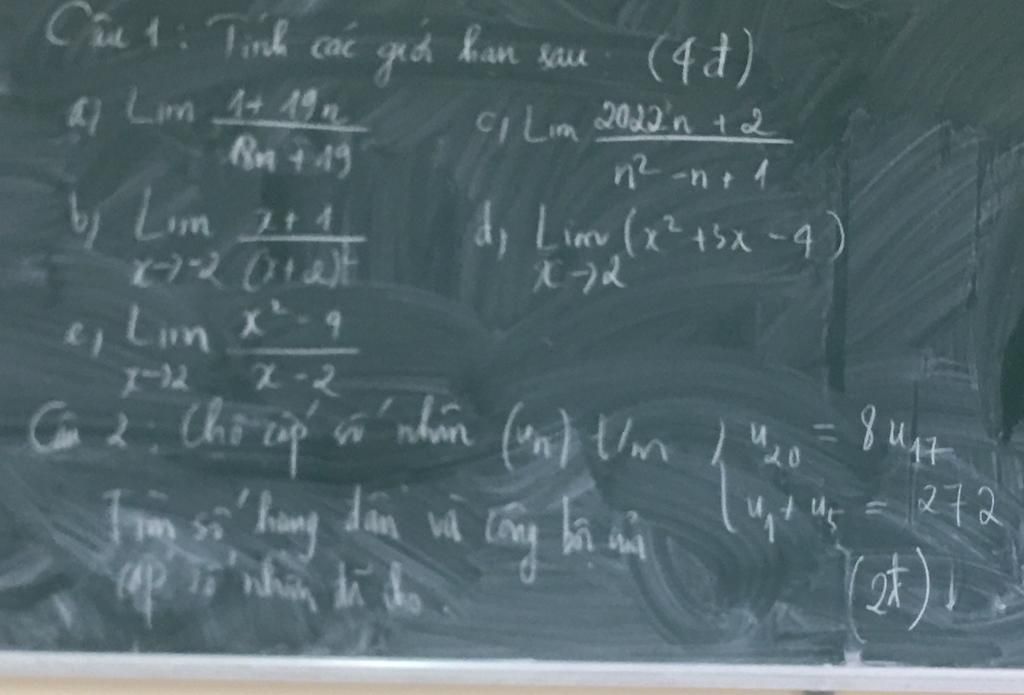 Câu 1: Tính các giới hạn sau (4đ)
a) Lim (1 + 19n)/(18n + 19) c, Lim (2022n + 2)/(n² - n + 1)
b) Lim x→-2 (x + 1)/(x + 2)² d, Lim x→2 (x² + 5x - 4)
e, Lim x→2 (x² - 9)/(x - 2)
Câu 2: Cho cấp số nhân (uₙ) t/m { u₂₀ = 8u₁₇
Tìm số hạng đầu và công bội của u₁ + u₅ = 272
cấp số nhân đã cho. (2đ)